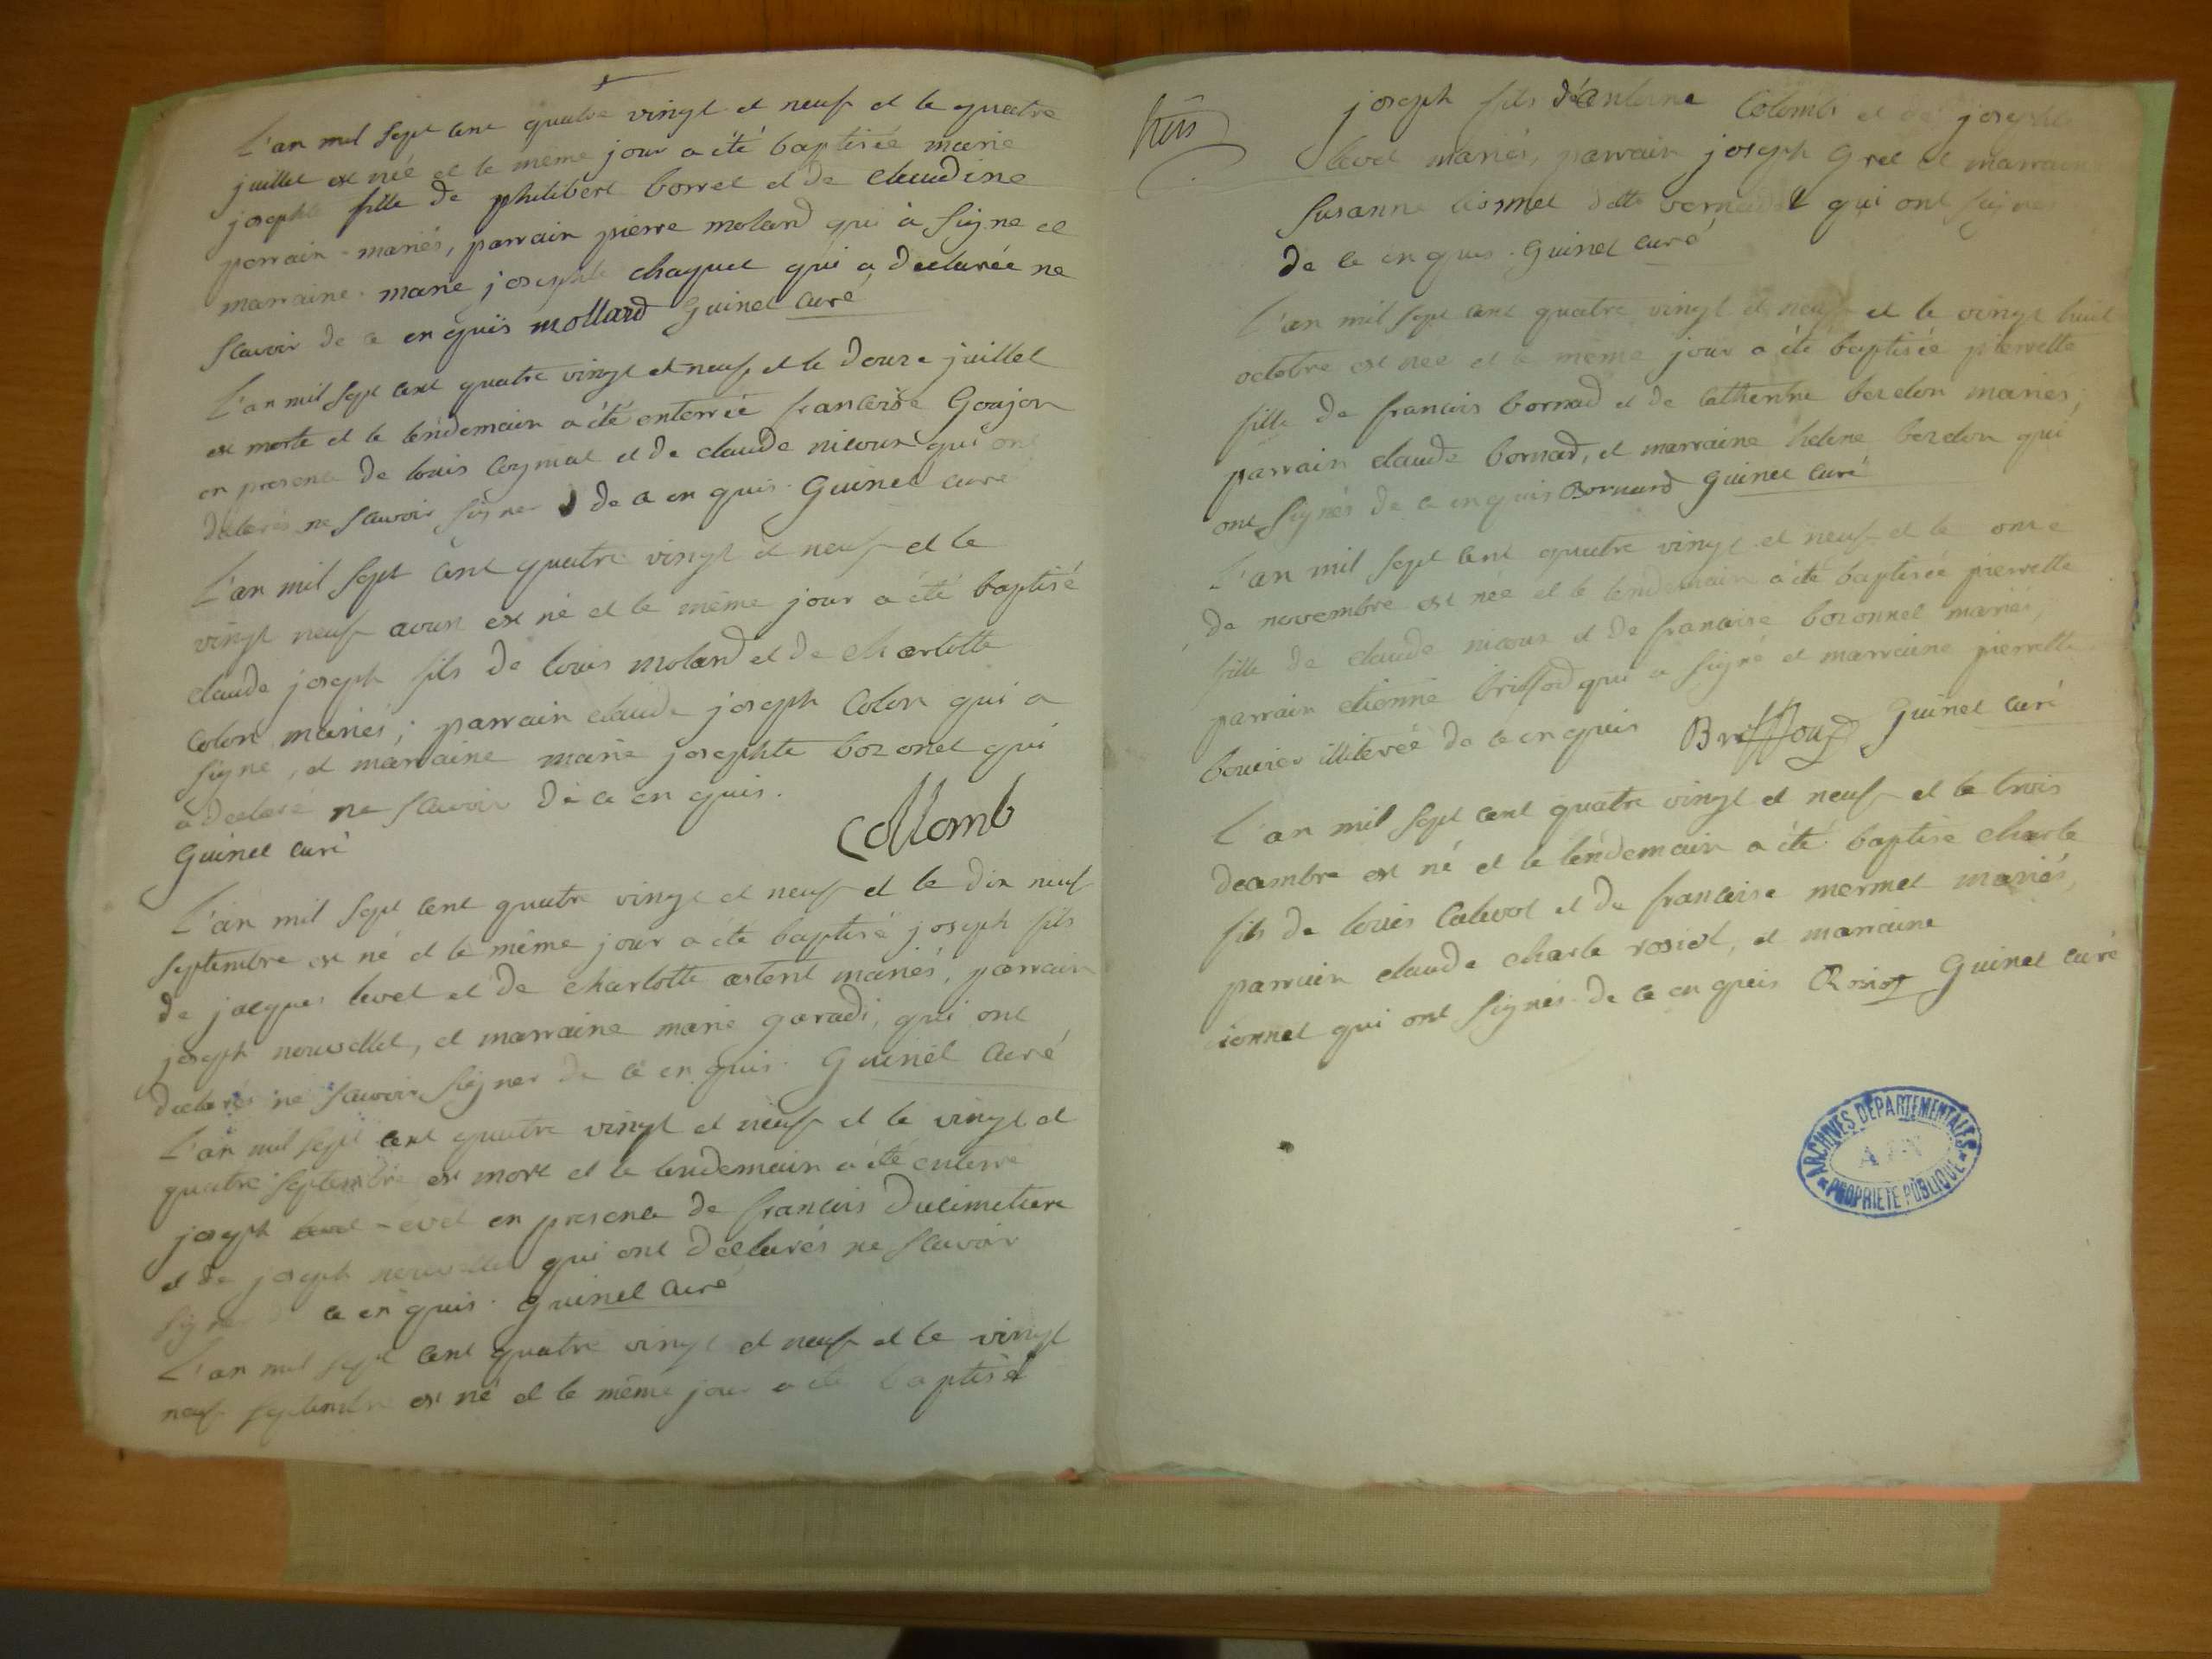 L'an mil sept cent quatre vingt et neuf et le quatre
juillet est né et le même jour a été baptisée marie
josephte fille de philibert borret et de claudine
perrain mariés, parrain pierre molard qui à signe et
marraine marie josephte chaquet qui a declarée ne
scavoir de ce enquis mollard Guinet curé
L'an mil sept cent quatre vingt et neuf et le douze juillet
est morte et le lendemain a été enterrée francoise Goujon
en presence de louis Coymat et de claude nicoux qui ont
declarés ne scavoir signer de ce en quis. Guinet curé
L'an mil sept cent quatre vingt et neuf et le
vingt neuf aoust est né et le même jour a été baptisé
claude joseph fils de louis molard et de charlotte
Colon mariés; parrain claude joseph Colon qui a
signe, et marraine marie josephte bozonet qui
a declaré ne scavoir de ce en quis.
Guinet curé
Collomb
L'an mil sept cent quatre vingt et neuf et le dix neuf
septembre est né et le même jour a été baptisé joseph fils
de jacques levet et de charlotte mariés, parrain
joseph nouvellet, et marraine marie garadi, qui ont
declarés ne scavoir signer de ce en quis. Guinet curé
L'an mil sept cent quatre vingt et neuf et le vingt et
quatre septembre est mort et le lendemain a été enterré
joseph levet en presence de francois Ducimetiere
et de joseph nouvellet qui ont declarés ne scavoir
signer ce en quis. Guinet curé
L'an mil sept cent quatre vingt et neuf et le vingt
neuf septembre est né et le même jour a été baptisé
joseph fils d'antoine Colomb et de josephte
levet mariés, parrain joseph Gret et marraine
Susanne dette qui ont signés
de ce en quis. Guinet curé
L'an mil sept cent quatre vingt et neuf et le vingt huit
octobre est née et le même jour a été baptisée pierrette
fille de francois bornad et de catherine bezdon mariés;
parrain claude bornad, et marraine helene bezdon qui
ont signés de ce en quis Bornard Guinet curé
L'an mil sept cent quatre vingt et neuf et le onze
de novembre est née et le lendemain a été baptisée pierrette
fille de claude nicoux et de francoise bozonnet mariés,
parrain etienne briffod qui a signé et marraine pierrette
bouvier illiterée de ce en quis Briffoud Guinet curé
L'an mil sept cent quatre vingt et neuf et le trois
decembre est né et le lendemain a été baptisé charle
fils de louis Calevot et de francoise mermet mariés,
parrain claude charle rosiot, et marraine
qui ont signés de ce en quis Rosiot Guinet curé
ARCHIVES DÉPARTEMENTALES
AIN
PROPRIÉTÉ PUBLIQUE